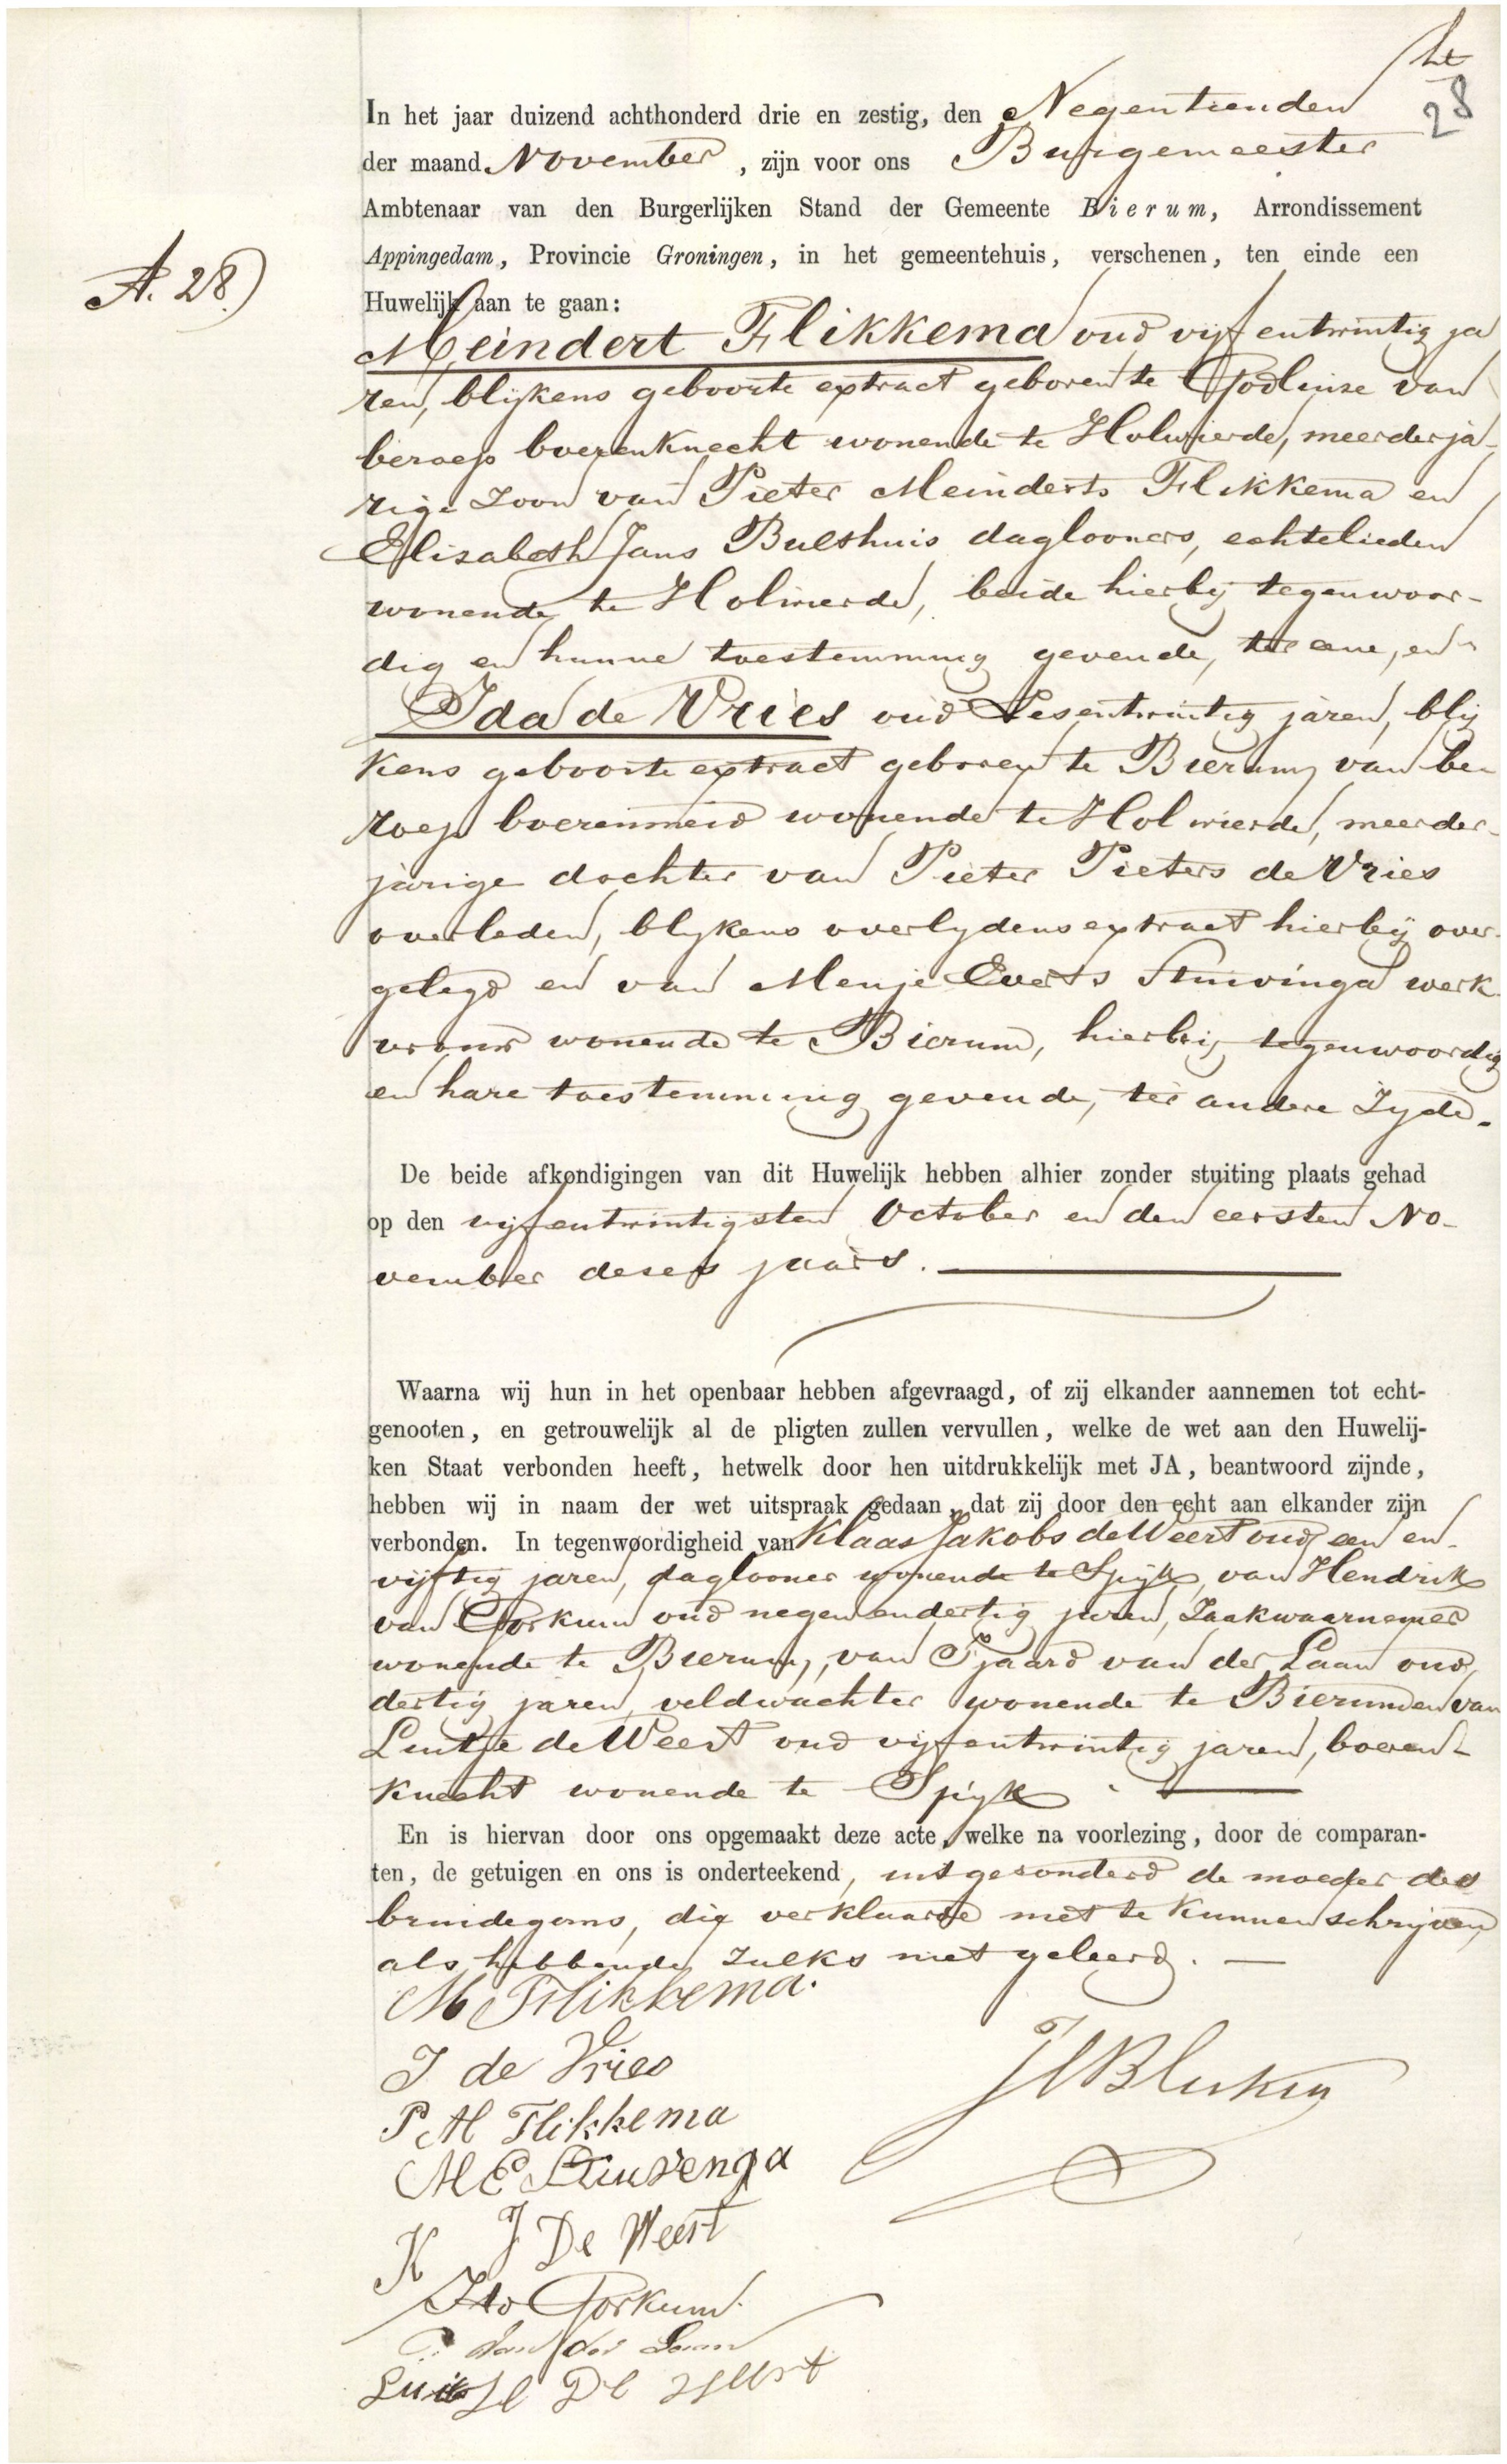 28
In het jaar duizend achthonderd drie en zestig, den Negentienden
der maand November, zijn voor ons Burgemeester
Ambtenaar van den Burgerlijken Stand der Gemeente Bierum, Arrondissement
Appingedam, Provincie Groningen, in het gemeentehuis, verschenen, ten einde een
A. 28.)
Huwelijk aan te gaan:
Meindert Flikkema oud vijfentwintig ja
ren, blijkens geboorte extract geboren te Godlinze van
beroep boerenknecht wonende te Holwierde, meerderja-
rige zoon van Pieter Meinderts Flikkema en
Elisabeth Jans Bulthuis daglooners, echtelieden
wonende te Holwierde, beide hierbij tegenwoor-
dig en hunne toestemming gevende, ter eene, en
Ida de Vries oud Sesentwintig jaren, blij
kens geboorte extract geboren te Bierum, van be-
roep boerenmeid wonende te Holwierde, meerder-
jarige dochter van Pieter Pieters de Vries
overleden, blykens overlydens extract hierbij over-
gelegd en van Menje Everts Stuivinga werk-
vrouw wonende te Bierum, hierbij tegenwoordig
en hare toestemming gevende, ter andere Zyde.
De beide afkondigingen van dit Huwelijk hebben alhier zonder stuiting plaats gehad
op den vijfentwintigsten October en den eersten No-
vember deses jaars.
Waarna wij hun in het openbaar hebben afgevraagd, of zij elkander aannemen tot echt-
genooten, en getrouwelijk al de pligten zullen vervullen, welke de wet aan den Huwelij-
ken Staat verbonden heeft, hetwelk door hen uitdrukkelijk met JA, beantwoord zijnde,
hebben wij in naam der wet uitspraak gedaan, dat zij door den echt aan elkander zijn
verbonden. In tegenwoordigheid van Klaas Jakobs de Weert oud een en
vijftig jaren, daglooner wonende te Spijk, van Hendrik
van Gorkum oud negen endertig jaren, Zaakwaarnemer
wonende te Bierum, van Tjaard van der Laan oud
dertig jaren veldwachter wonende te Bierum en van
Luitje de Weert oud vijfentwintig jaren, boeren-
knecht wonende te Spijk.
En is hiervan door ons opgemaakt deze acte, welke na voorlezing, door de comparan-
ten, de getuigen en ons is onderteekend, uitgesonderd de moeder des
bruidegoms, die verklaarde niet te kunnen schrijven,
als hebbende zulks niet geleerd.
M Flikkema.
I de Vries
P M Flikkema
M E Stuivenga
K J De Weert
Gorkum
van der Laan
Luitje De Weert